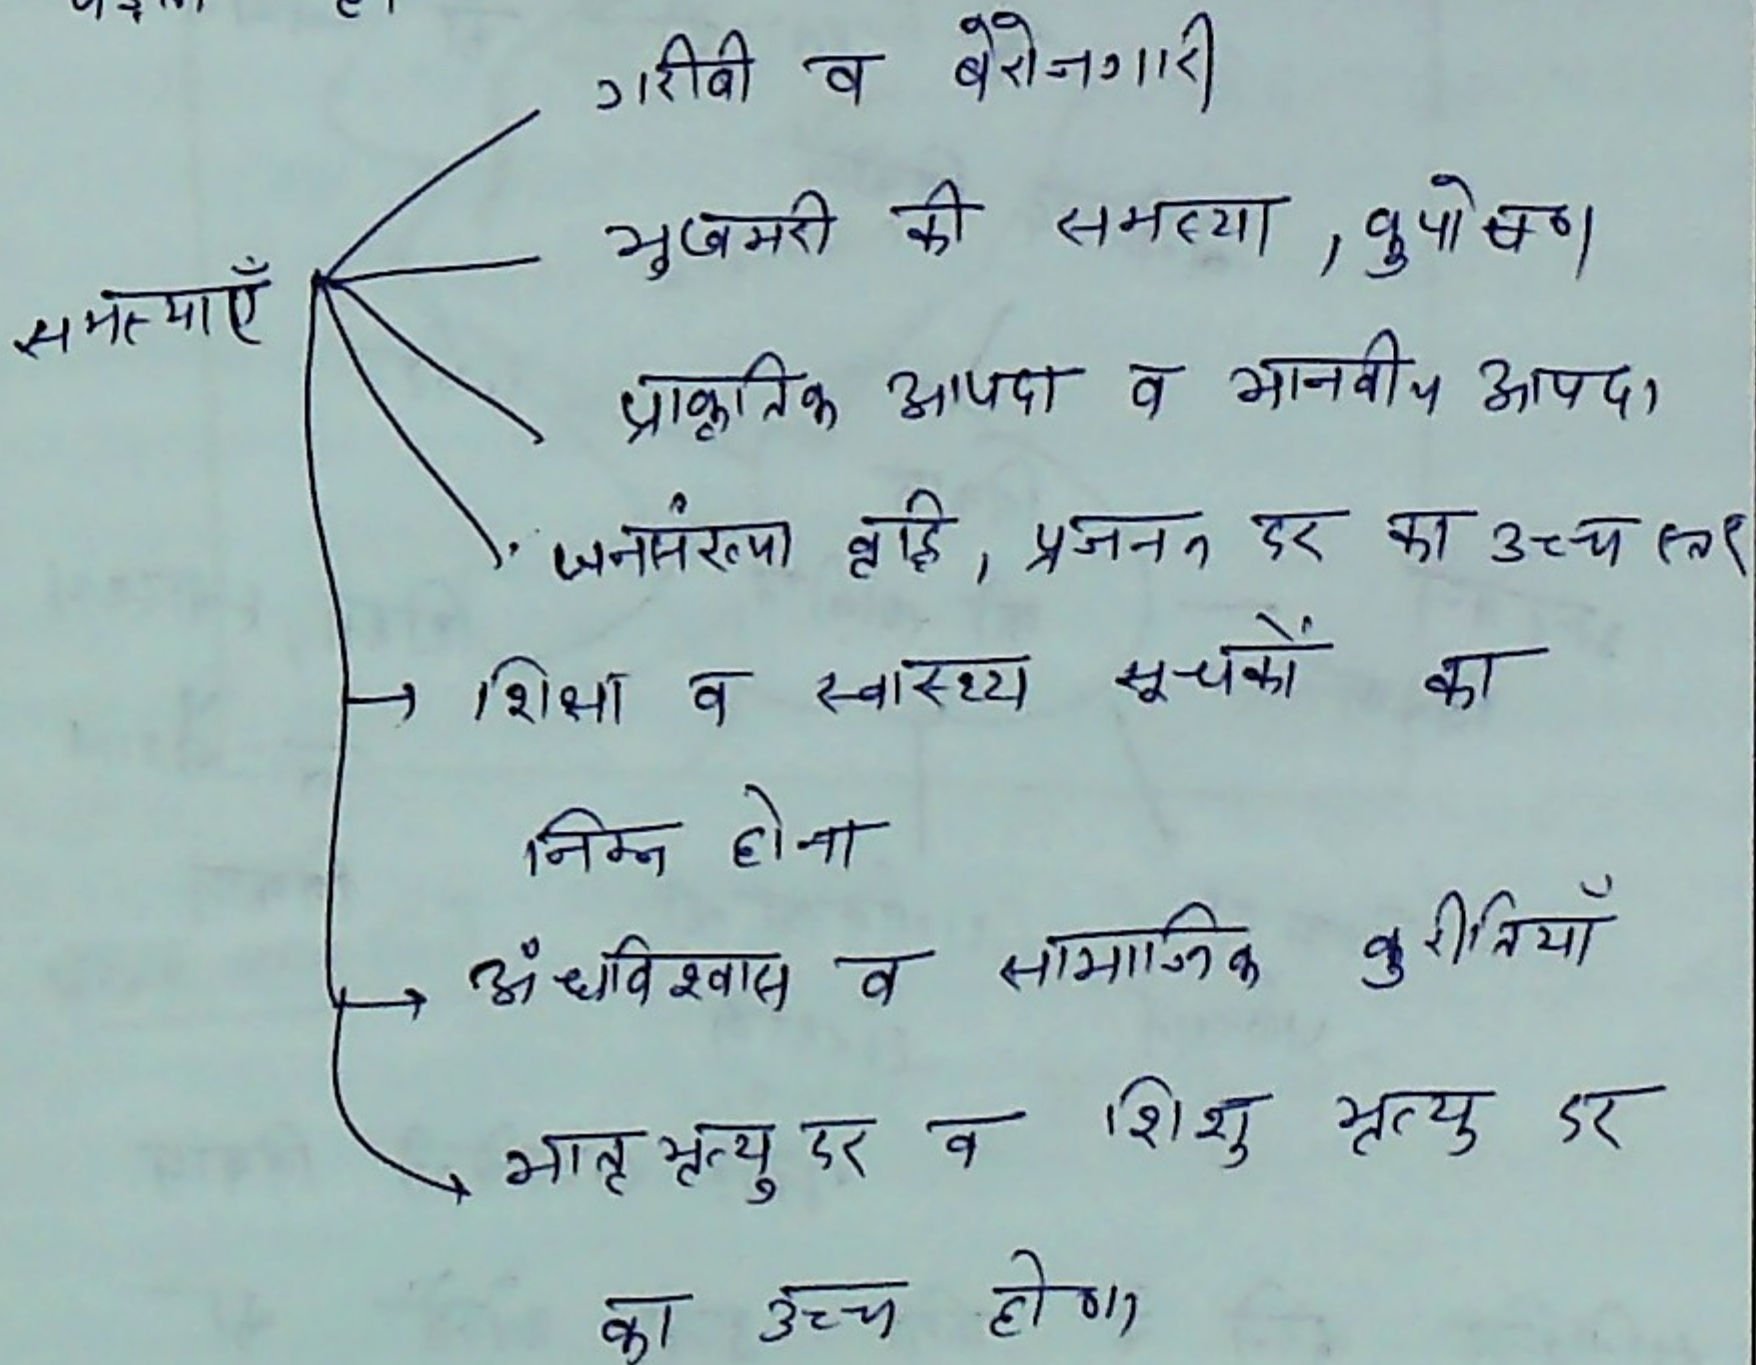 गरीबी व बेरोजगारी
भुखमरी की समस्या, कुपोषण
समस्याएँ
प्राकृतिक आपदा व मानवीय आपदा
जनसंख्या वृद्धि, प्रजनन दर का उच्च स्तर
→ शिक्षा व स्वास्थ्य सूचकों का
निम्न होना
→ अंधविश्वास व सामाजिक कुरीतियाँ
मातृ मृत्यु दर व शिशु मृत्यु दर
का उच्च होना